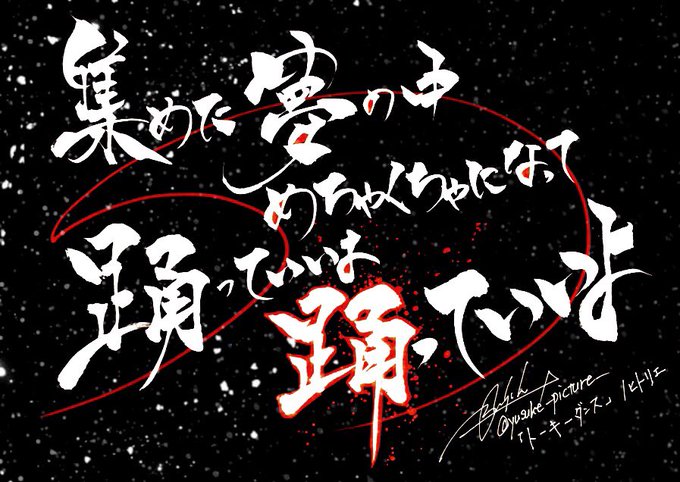 集めた夢の中
めちゃくちゃになって
踊っていいよ
踊っていいよ
@yusuke-picture
「トーキーダンス」/ヒトリエ